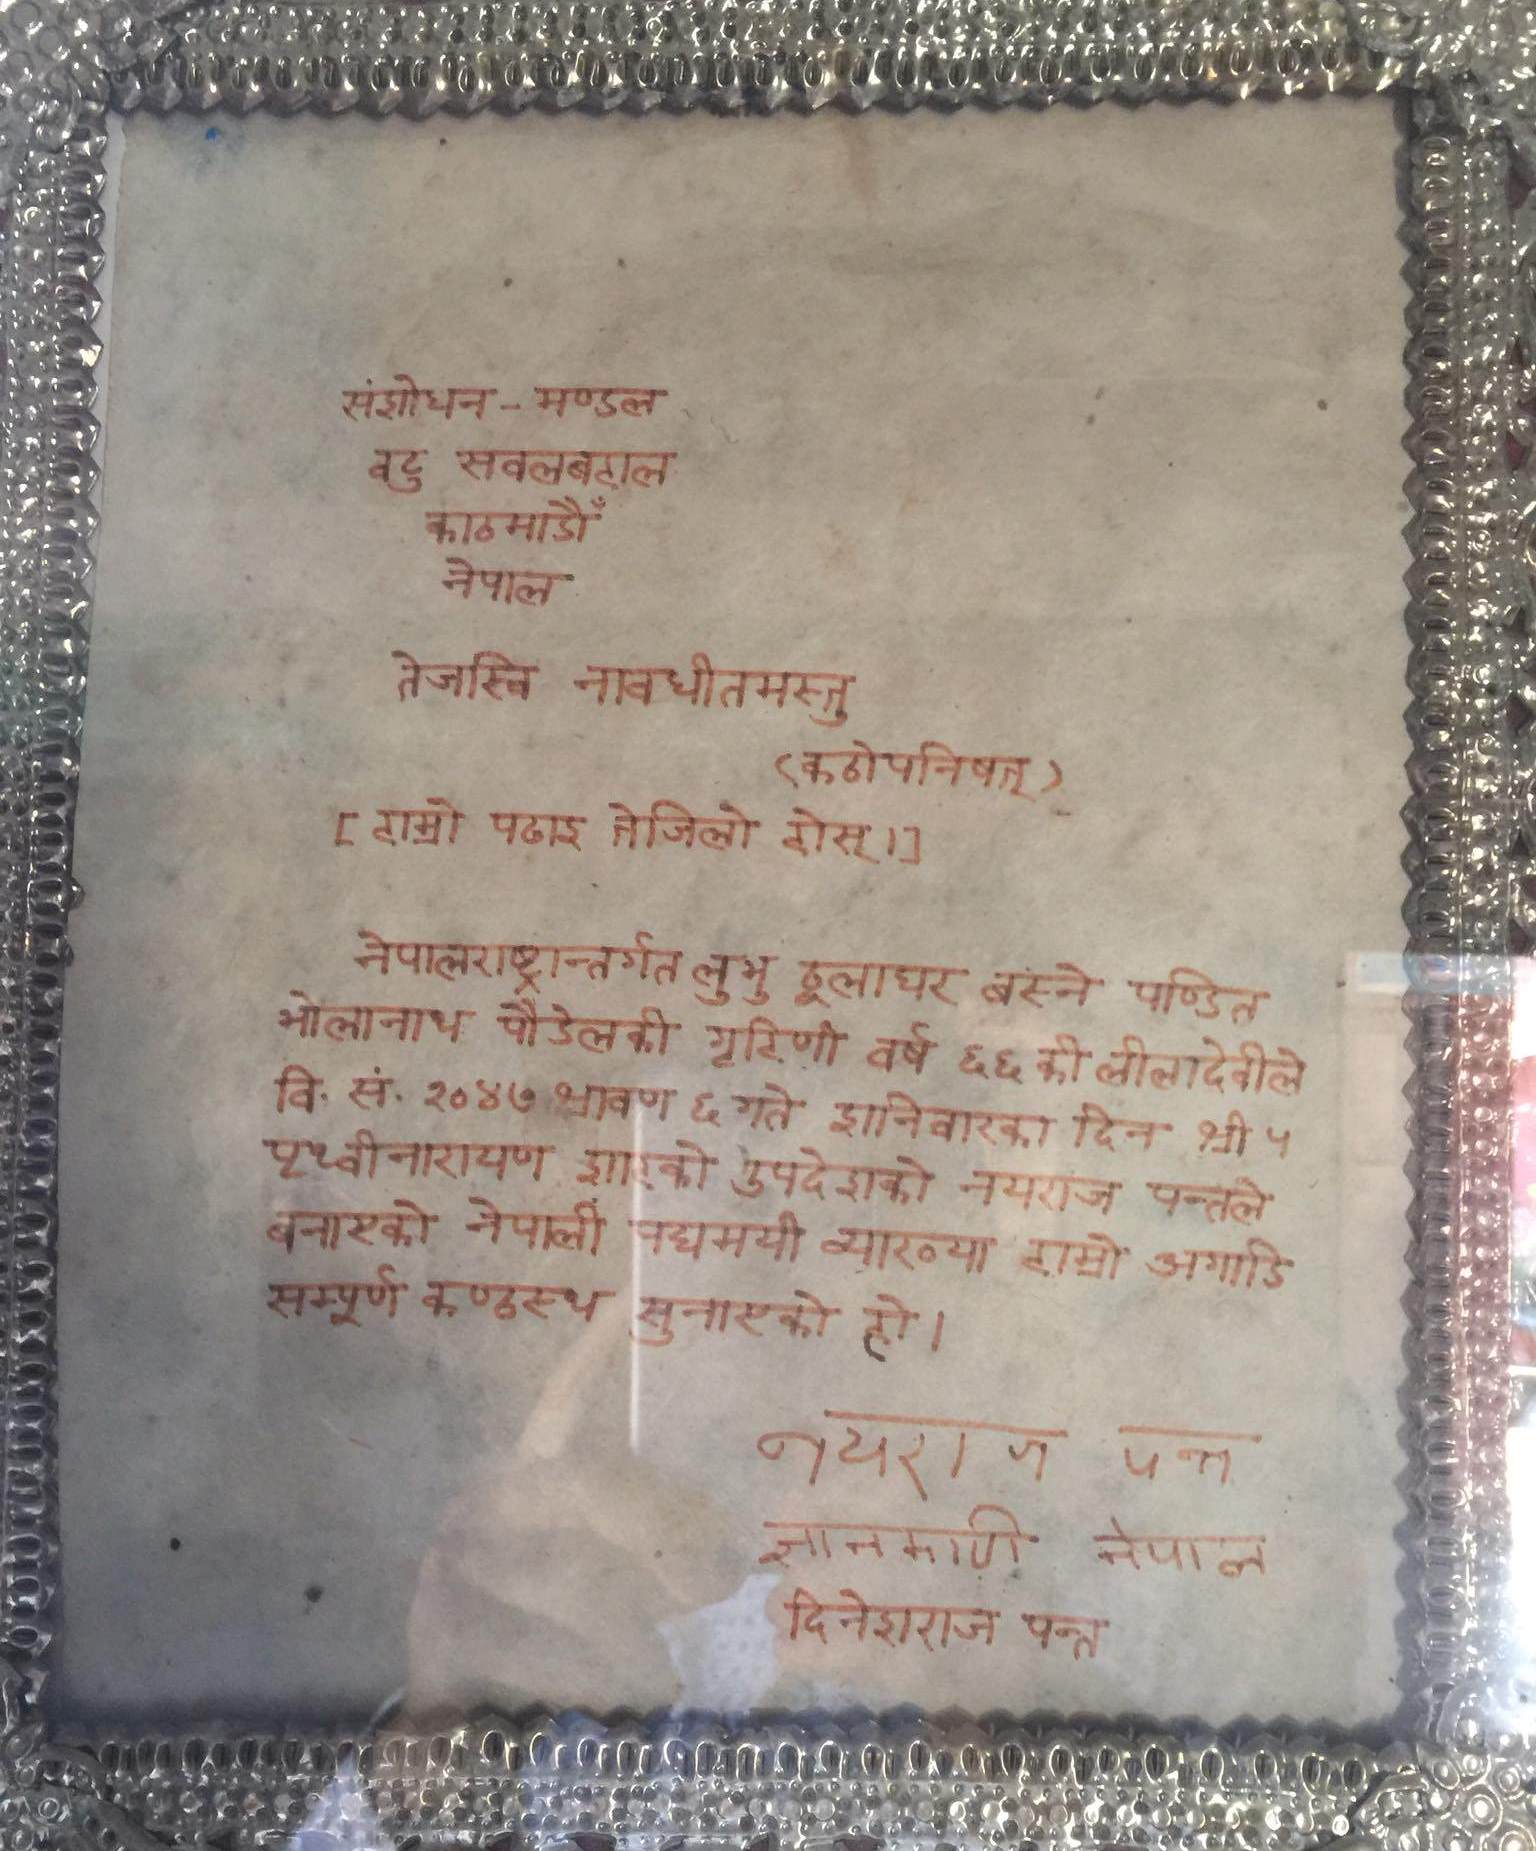 संशोधन - मण्डल
वटु सवलबहाल
काठमाडौँ
नेपाल
तेजस्वि नावधीतमस्तु
(कठोपनिषत्)
[हाम्रो पढाइ तेजिलो होस्।]
नेपालराष्ट्रान्तर्गत लुभु ठूलाघर बस्ने पण्डित
भोलानाथ पौडेलकी गृहिणी वर्ष ६६ की लीलादेवीले
वि. सं. २०४७ श्रावण ६ गते शनिवारका दिन श्री ५
पृथ्वीनारायण शाहको उपदेशको नयराज पन्तले
बनाएको नेपाली पद्यमयी व्याख्या हाम्रो अगाडि
सम्पूर्ण कण्ठस्थ सुनाएको हो।
नयराज पन्त
ज्ञानमणि नेपाल
दिनेशराज पन्त